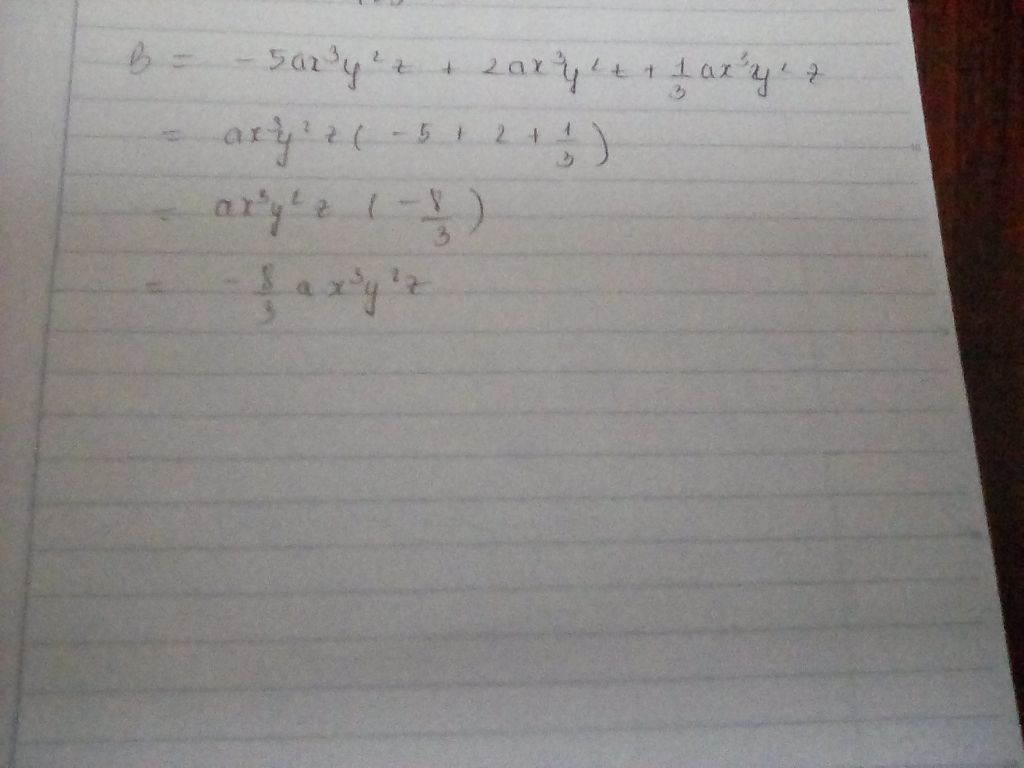 B = - 5ax³y²z + 2ax³y²z + 1/3 ax³y²z
= ax³y²z ( - 5 + 2 + 1/3 )
= ax³y²z ( - 8/3 )
= - 8/3 a x³y²z